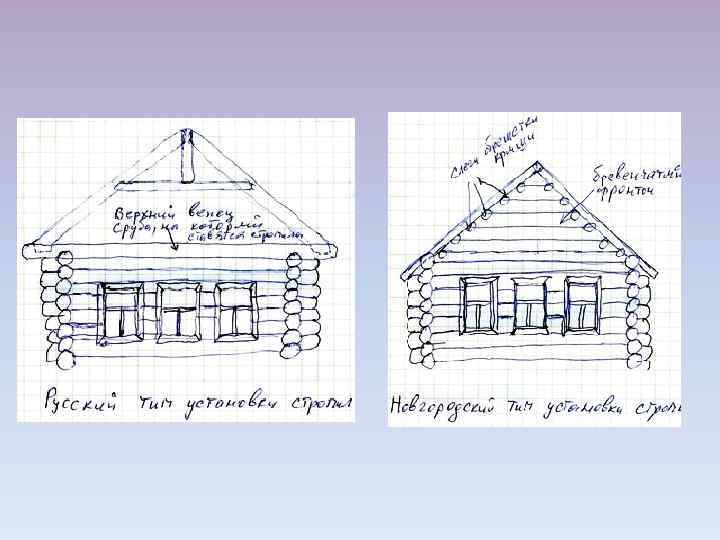 Верхний венец
сруба, на который
ставятся стропила
Русский тип установки стропил
слеги обрешетки
крыши
бревенчатый
фронтон
Новгородский тип установки строп